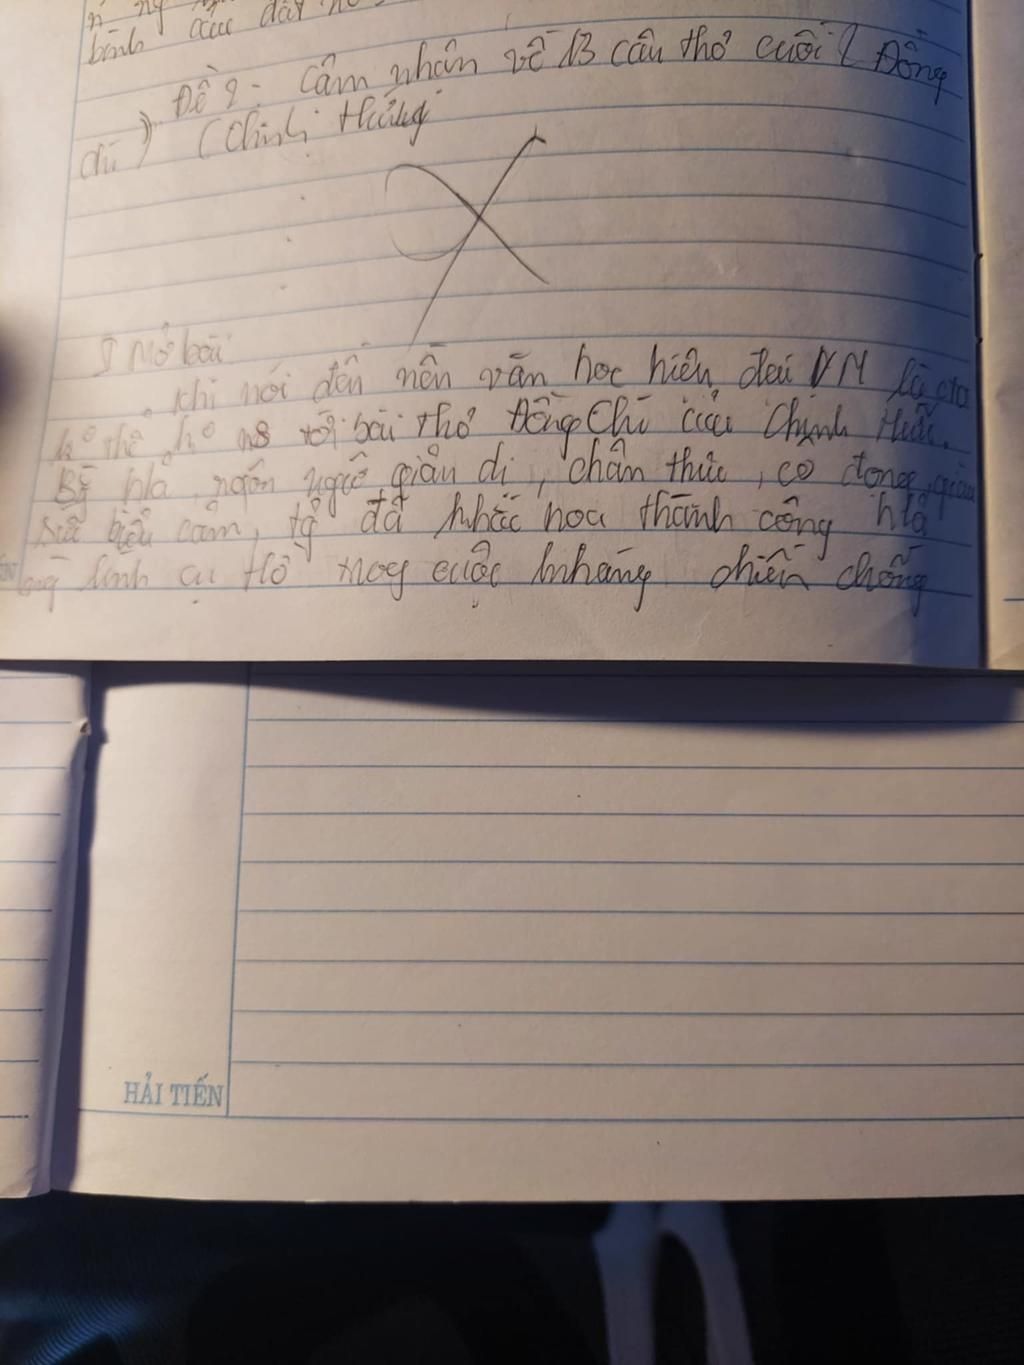 bình của đất
Đề 2: Cảm nhận về 13 câu thơ cuối ( Đồng
chí ) (Chính Hữu)
I Mở bài
Khi nói đến nền văn học hiện đại VN là
thể tới bài thơ Đồng Chí của Chính Hữu.
Bg hả, ngôn ngữ giản dị, chân thực, cô đọng, giàu
sức biểu cảm, tg đã khắc họa thành công hả
lính cụ Hồ trog cuộc kháng chiến chống
HẢI TIẾN